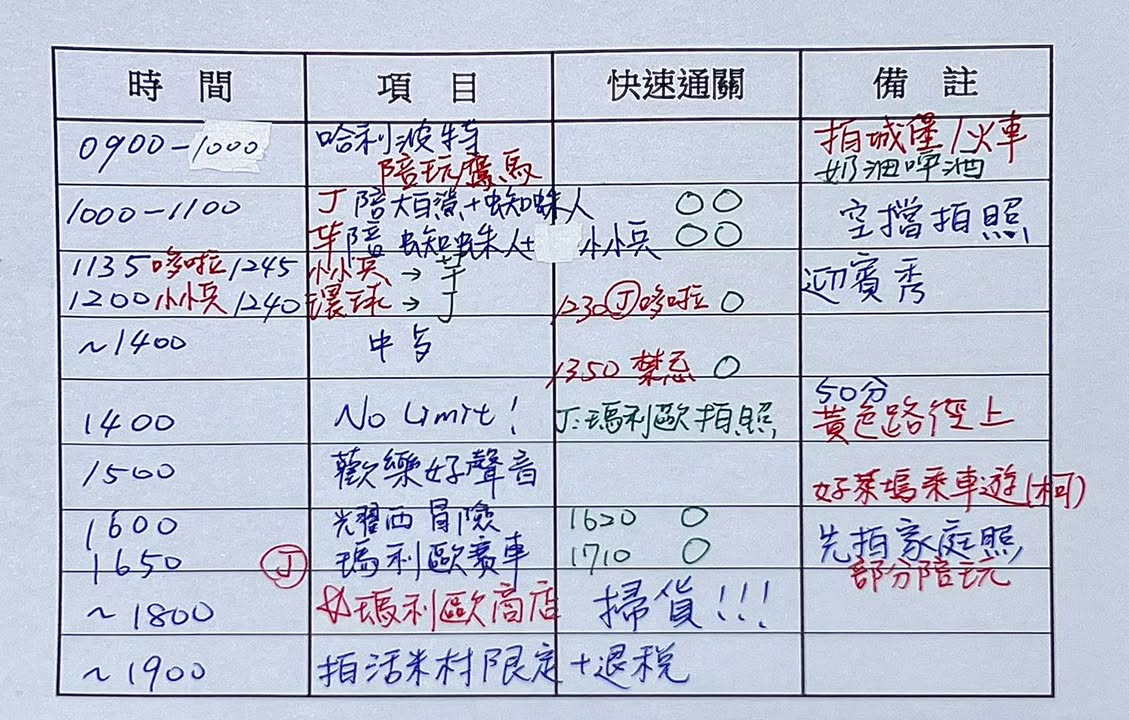 時間 項目 快速通關 備註
0900-1000 哈利波特 拍城堡/火車
陪玩鷹馬 奶油啤酒
1000-1100 J陪大白鯊+蜘蛛人 ○○ 空擋拍照
芊陪 蜘蛛人+ 小小兵 ○○
1135哆啦1245 小小兵→芊 迎賓秀
1200小小兵1240 環球→J 1230Ⓙ哆啦 ○
~1400 中午
1350 禁忌 ○
50分
1400 No Limit! J:瑪利歐拍照 黃色路徑上
1500 歡樂好聲音
好萊塢乘車遊(柯)
1600 耀西冒險 1620 ○ 先拍家庭照
1650 Ⓙ 瑪利歐賽車 1710 ○ 部分陪玩
~1800 ☆瑪利歐商店 掃貨!!!
~1900 拍活米村限定+退稅